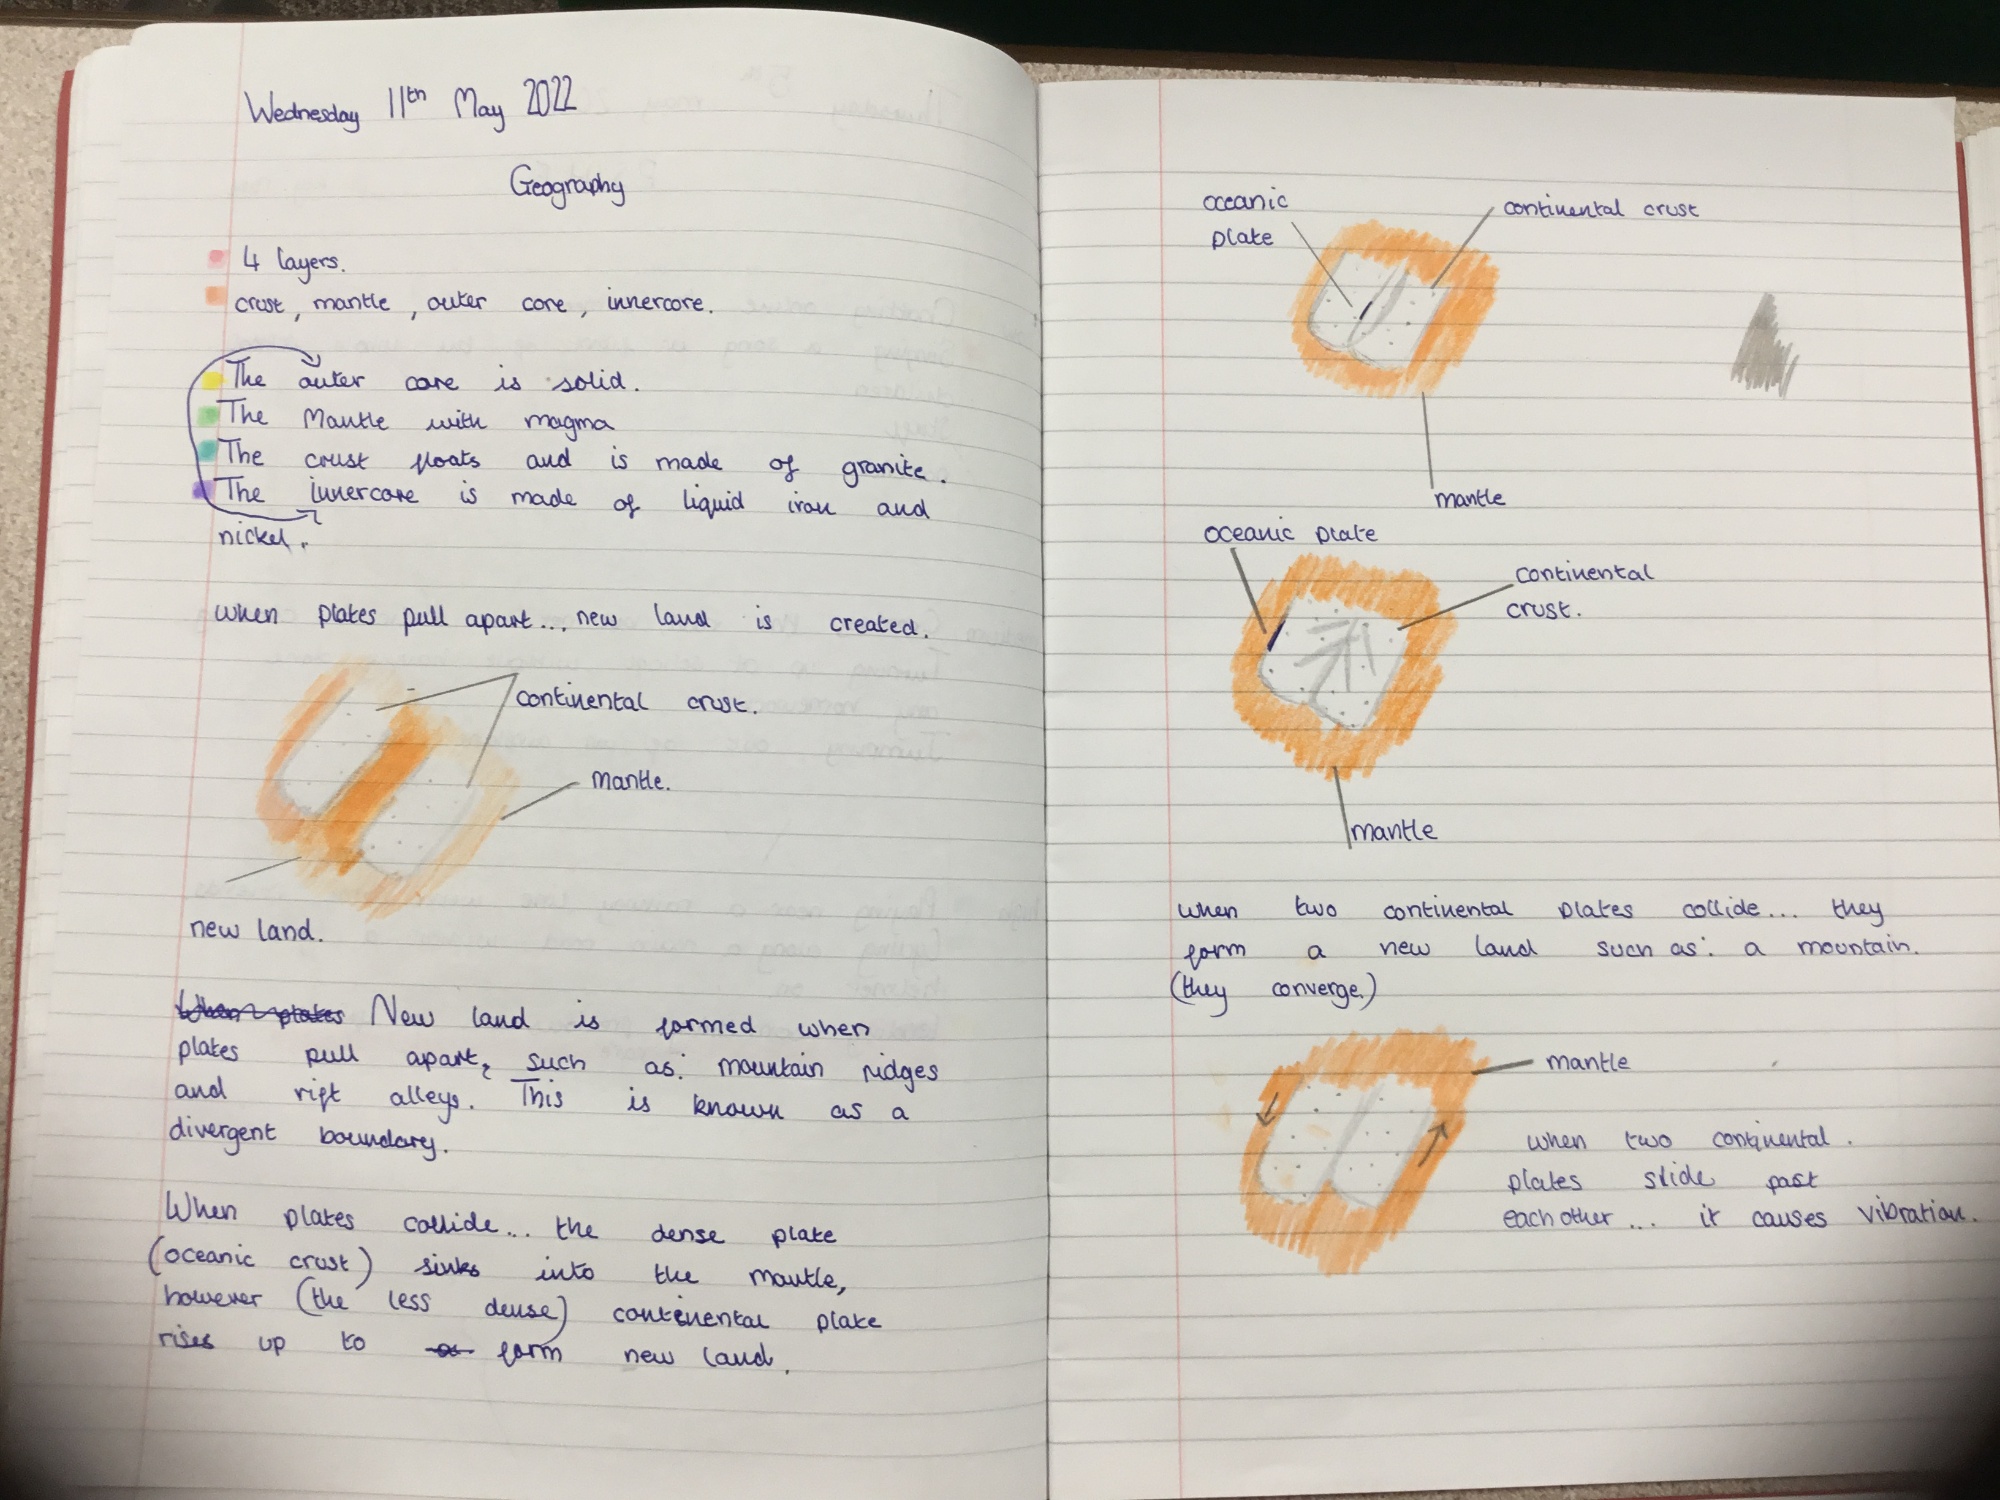 Wednesday 11th May 2022
Geography
4 layers.
crust, mantle, outer core, innercore.
The outer core is solid.
The Mantle with magma
The crust floats and is made of granite.
The innercore is made of liquid iron and
nickel.
when plates pull apart... new land is created.
continental crust.
mantle.
new land.
When plates New land is formed when
plates pull apart, such as: mountain ridges
and rift alleys. This is known as a
divergent boundary.
When plates collide... the dense plate
(oceanic crust) sinks into the mantle,
however (the less dense) continental plate
rises up to form new land.
oceanic
plate
continental crust
mantle
oceanic plate
continental
crust.
mantle
when two continental plates collide... they
form a new land such as: a mountain.
(they converge.)
mantle
when two continental.
plates slide past
each other... it causes vibration.